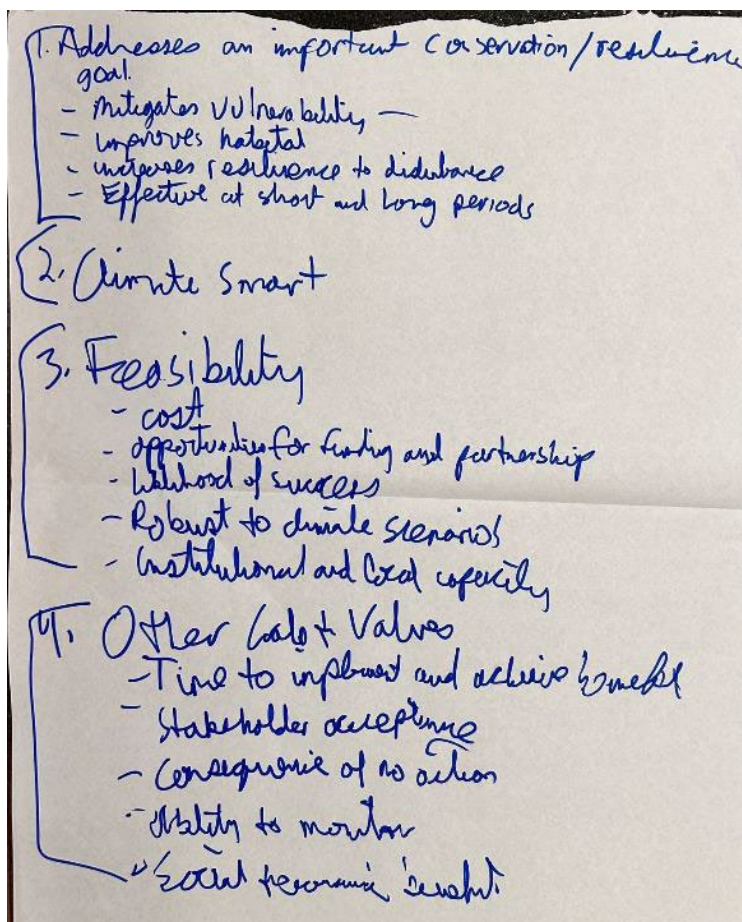 1. Addresses an important Conservation/resilience
goal.
- Mitigates Vulnerability -
- improves habitat
- increases resilience to disturbance
- Effective at short and long periods
2. Climate Smart
3. Feasibility
- cost
- opportunities for funding and partnership
- likelihood of success
- Robust to climate scenarios
- Institutional and local capacity
4. Other Goals + Values
- Time to implement and achieve benefit
- Stakeholder acceptance
- Consequence of no action
- Ability to monitor
- Social benefit